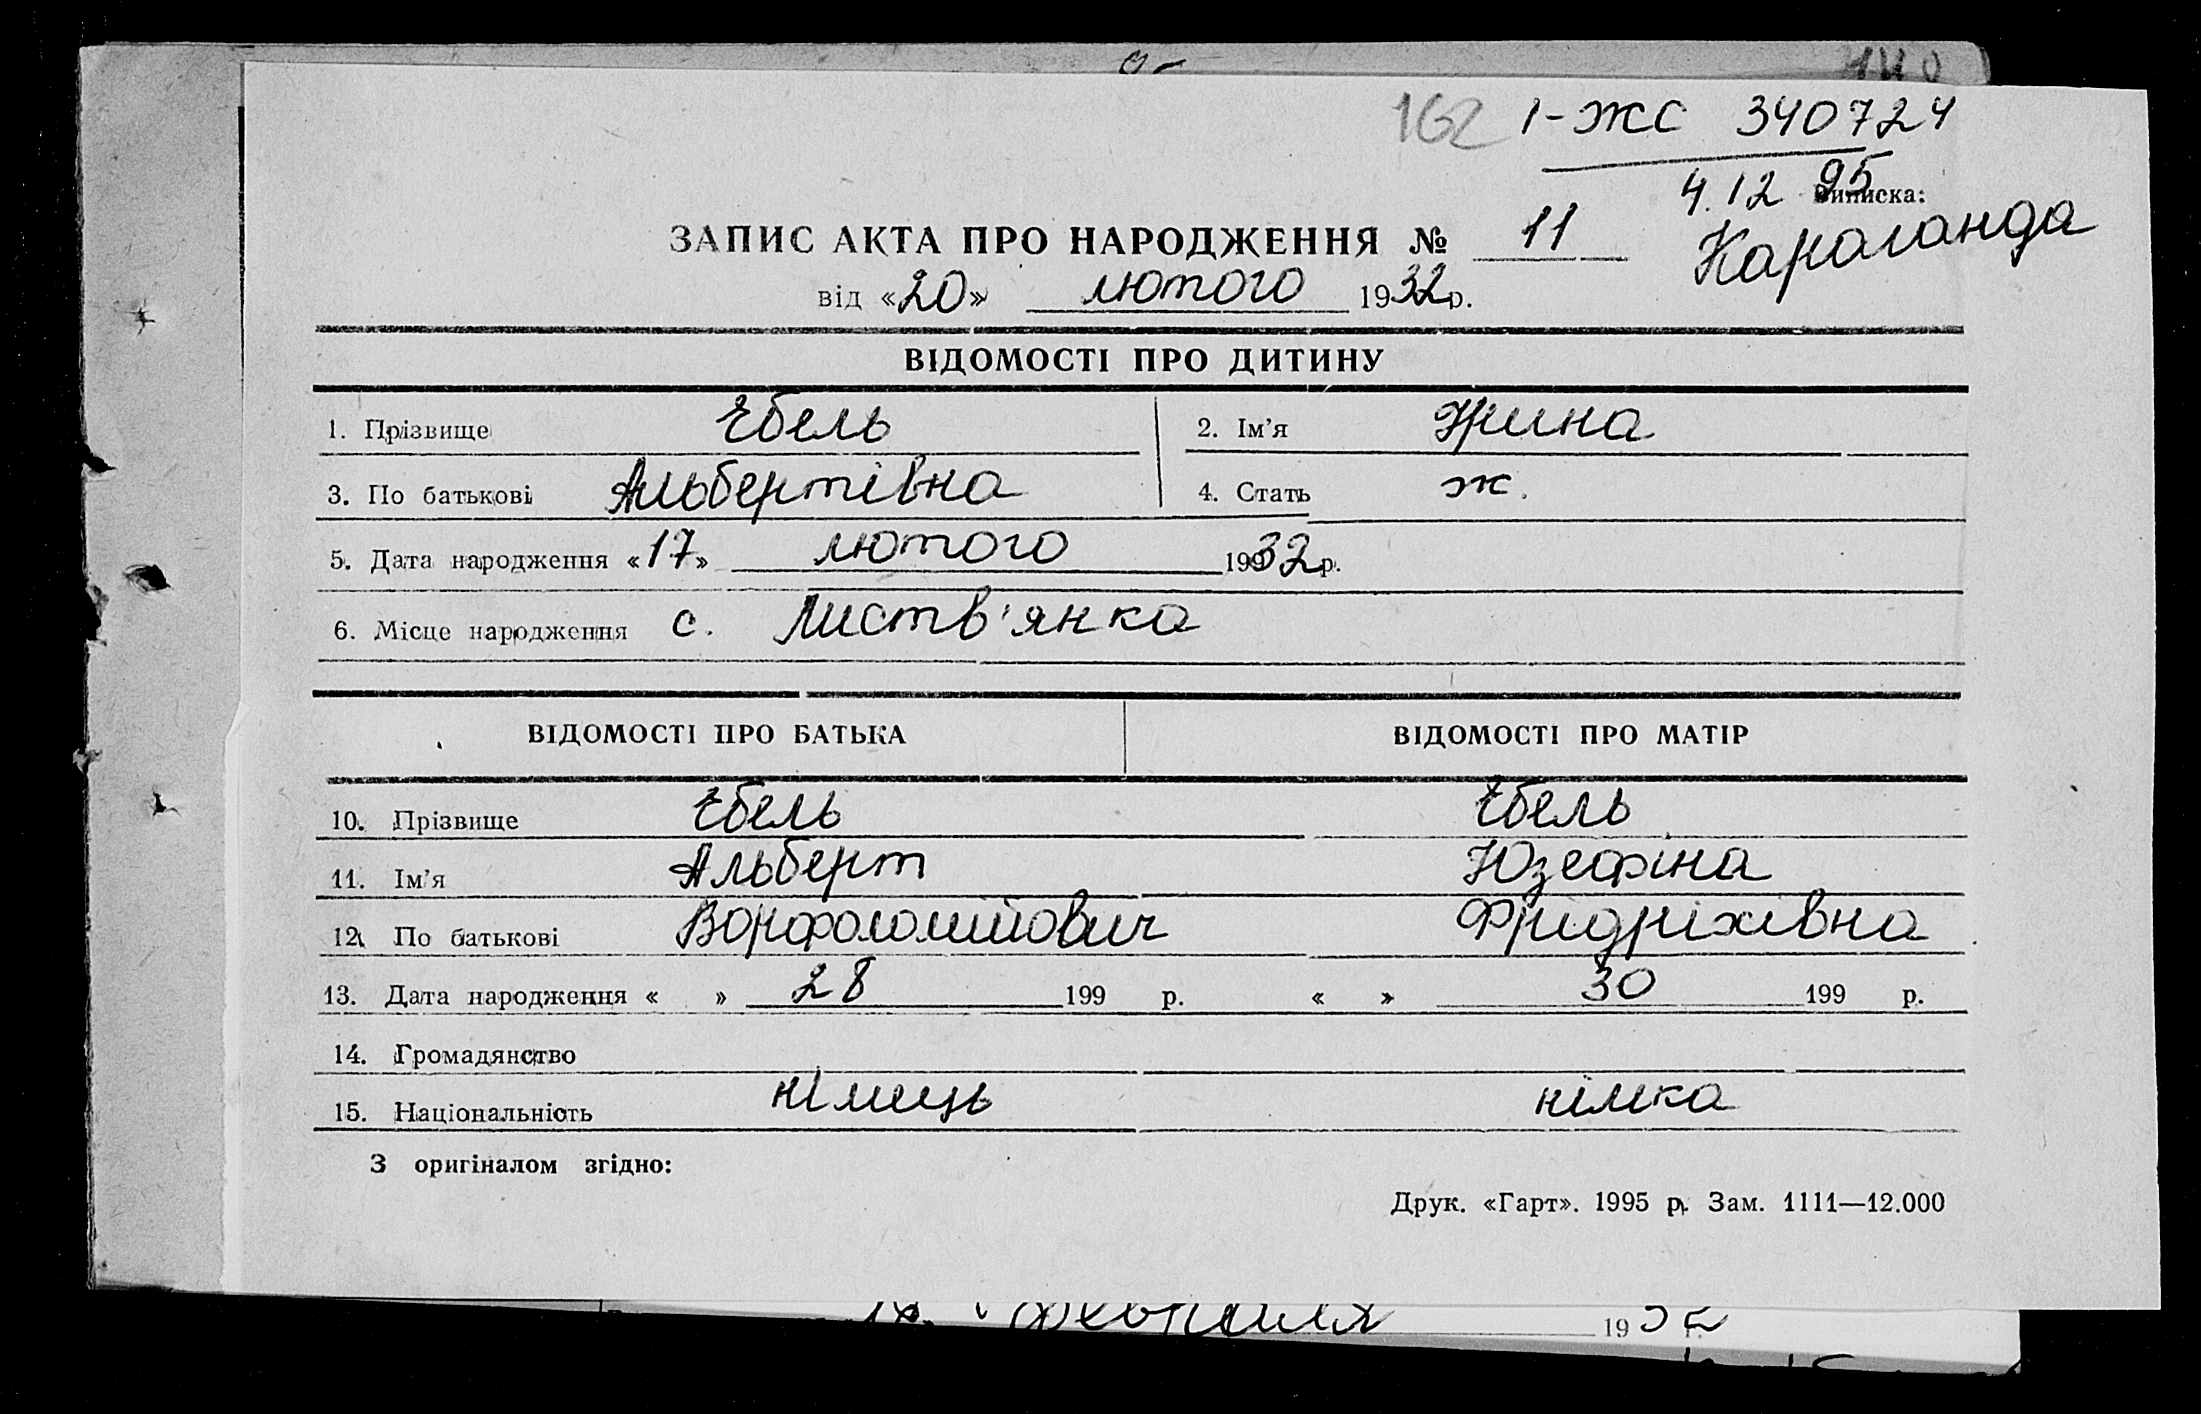 140
162 1-ЖС 340724
4.12 95 Виписка:
Караганда
ЗАПИС АКТА ПРО НАРОДЖЕННЯ № 11
від «20» лютого 1932р.
ВІДОМОСТІ ПРО ДИТИНУ
1. Прізвище Ебель 2. Ім'я Ирина
3. По батькові Альбертівна 4. Стать ж.
5. Дата народження «17» лютого 19932р.
6. Місце народження с. Листв'янка
ВІДОМОСТІ ПРО БАТЬКА ВІДОМОСТІ ПРО МАТІР
10. Прізвище Ебель Ебель
11. Ім'я Альберт Юзефіна
12. По батькові Ворфоломійович Фрідріхівна
13. Дата народження « » 28 199 р. « » 30 199 р.
14. Громадянство
15. Національність німець німка
З оригіналом згідно:
Друк. «Гарт». 1995 р. Зам. 1111—12.000
февраля 1932 г.